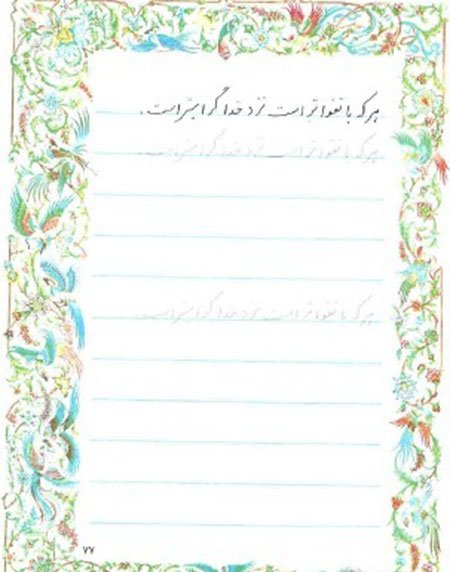 هر که با تقواتر است نزد خدا گرامیتر است.
هر که با تقواتر است نزد خدا گرامیتر است.
هر که با تقواتر است نزد خدا گرامیتر است.
۷۷